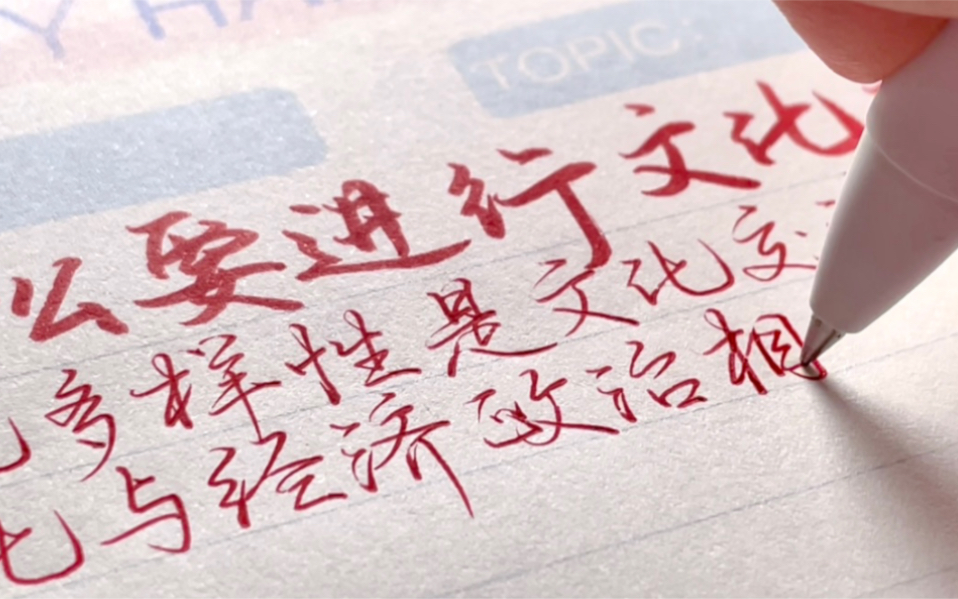 Y HA
TOPIC:
么要进行文化
多样性是文化交
化与经济政治相